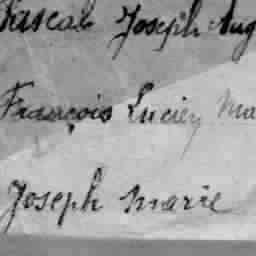 Pascal Joseph Aug
François Lucien Ma
Joseph Marie